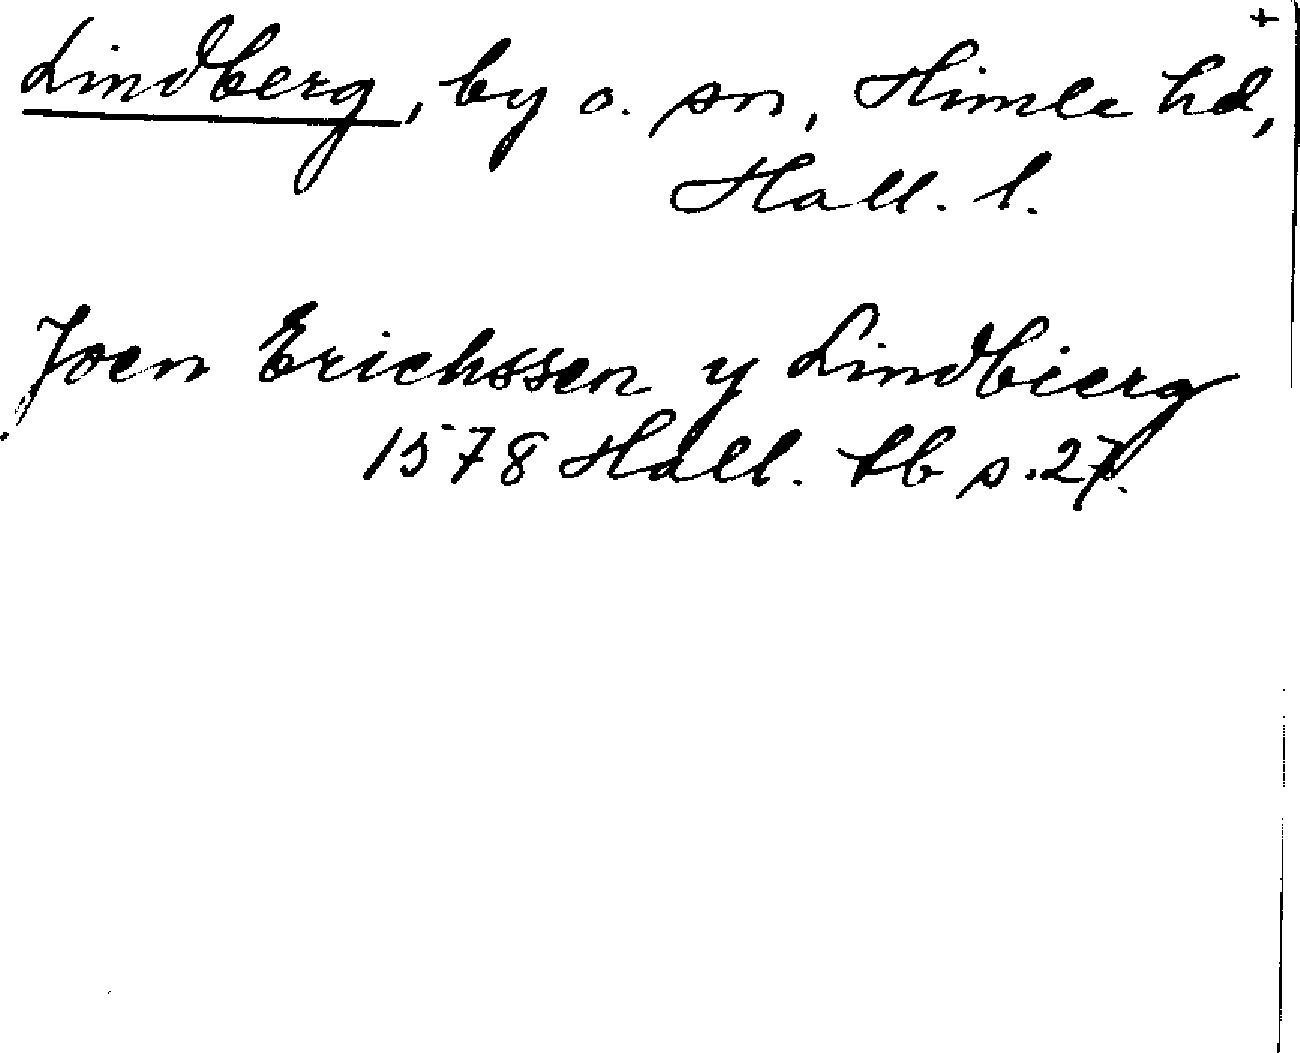 +
Lindberg, by o. sn, Himle hd,
Hall. l.
Joen Erichssen y Lindbierg
1578 Hall. tb s. 27.